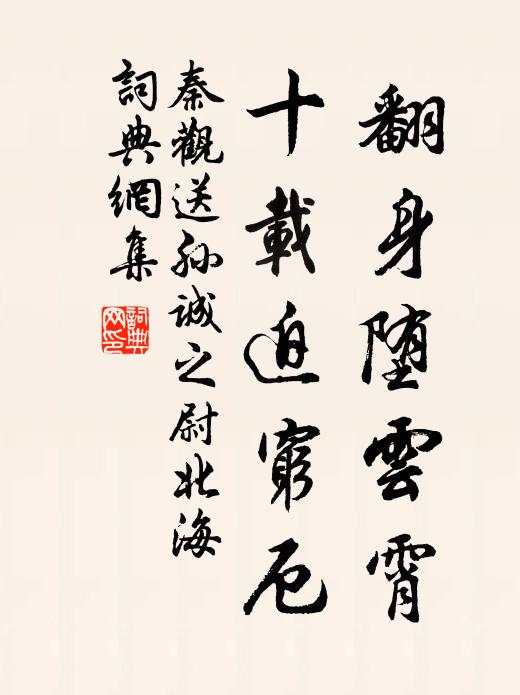 翻身堕雲霄
十載迫窮厄
秦觀送孙诚之尉北海
詞典網集
詞典网印